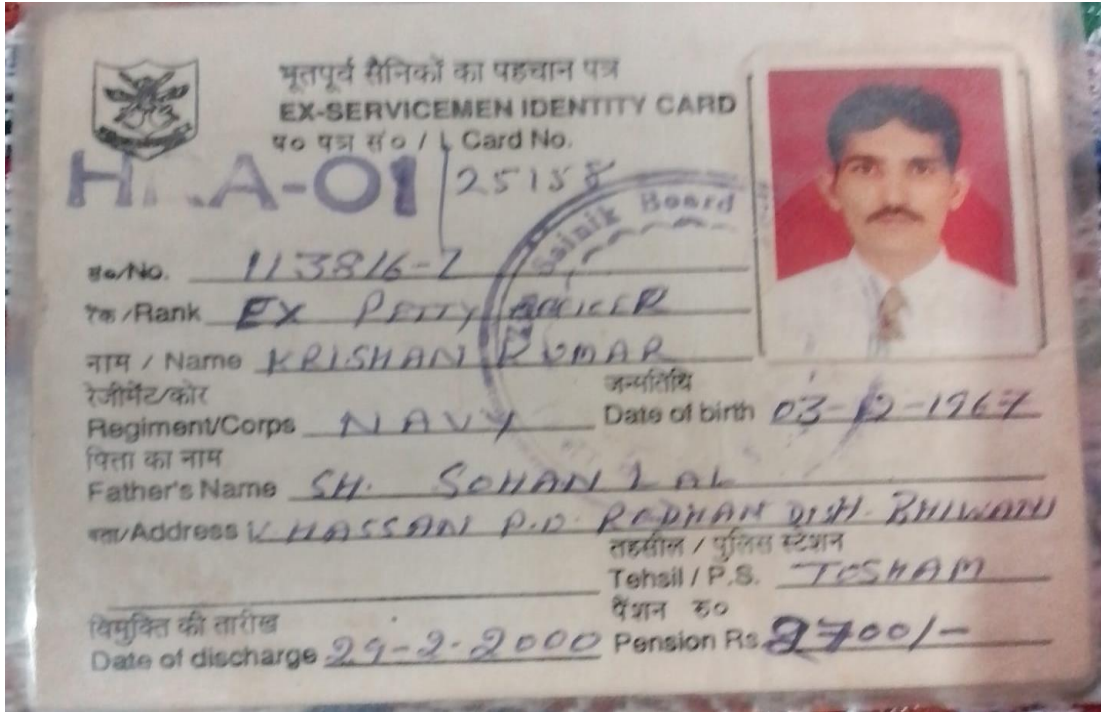 भूतपूर्व सैनिकों का पहचान पत्र
EX-SERVICEMEN IDENTITY CARD
प० पत्र सं० / Card No.
A-01 25158
Sainik Board
सं०/No. 113816-Z
रैंक/Rank EX PETTY OFFICER
नाम / Name KRISHAN KUMAR
रेजीमेंट/कोर
Regiment/Corps NAVY
जन्मतिथि
Date of birth 03-12-1967
पिता का नाम
Father's Name SH. SOHAN LAL
पता/Address V. HASSAN P.O. RODHAN DISH. BHIWANI
तहसील / पुलिस स्टेशन
Tehsil / P.S. TOSHAM
विमुक्ति की तारीख
Date of discharge 29-2-2000
पैंशन रु०
Pension Rs. 2700/-